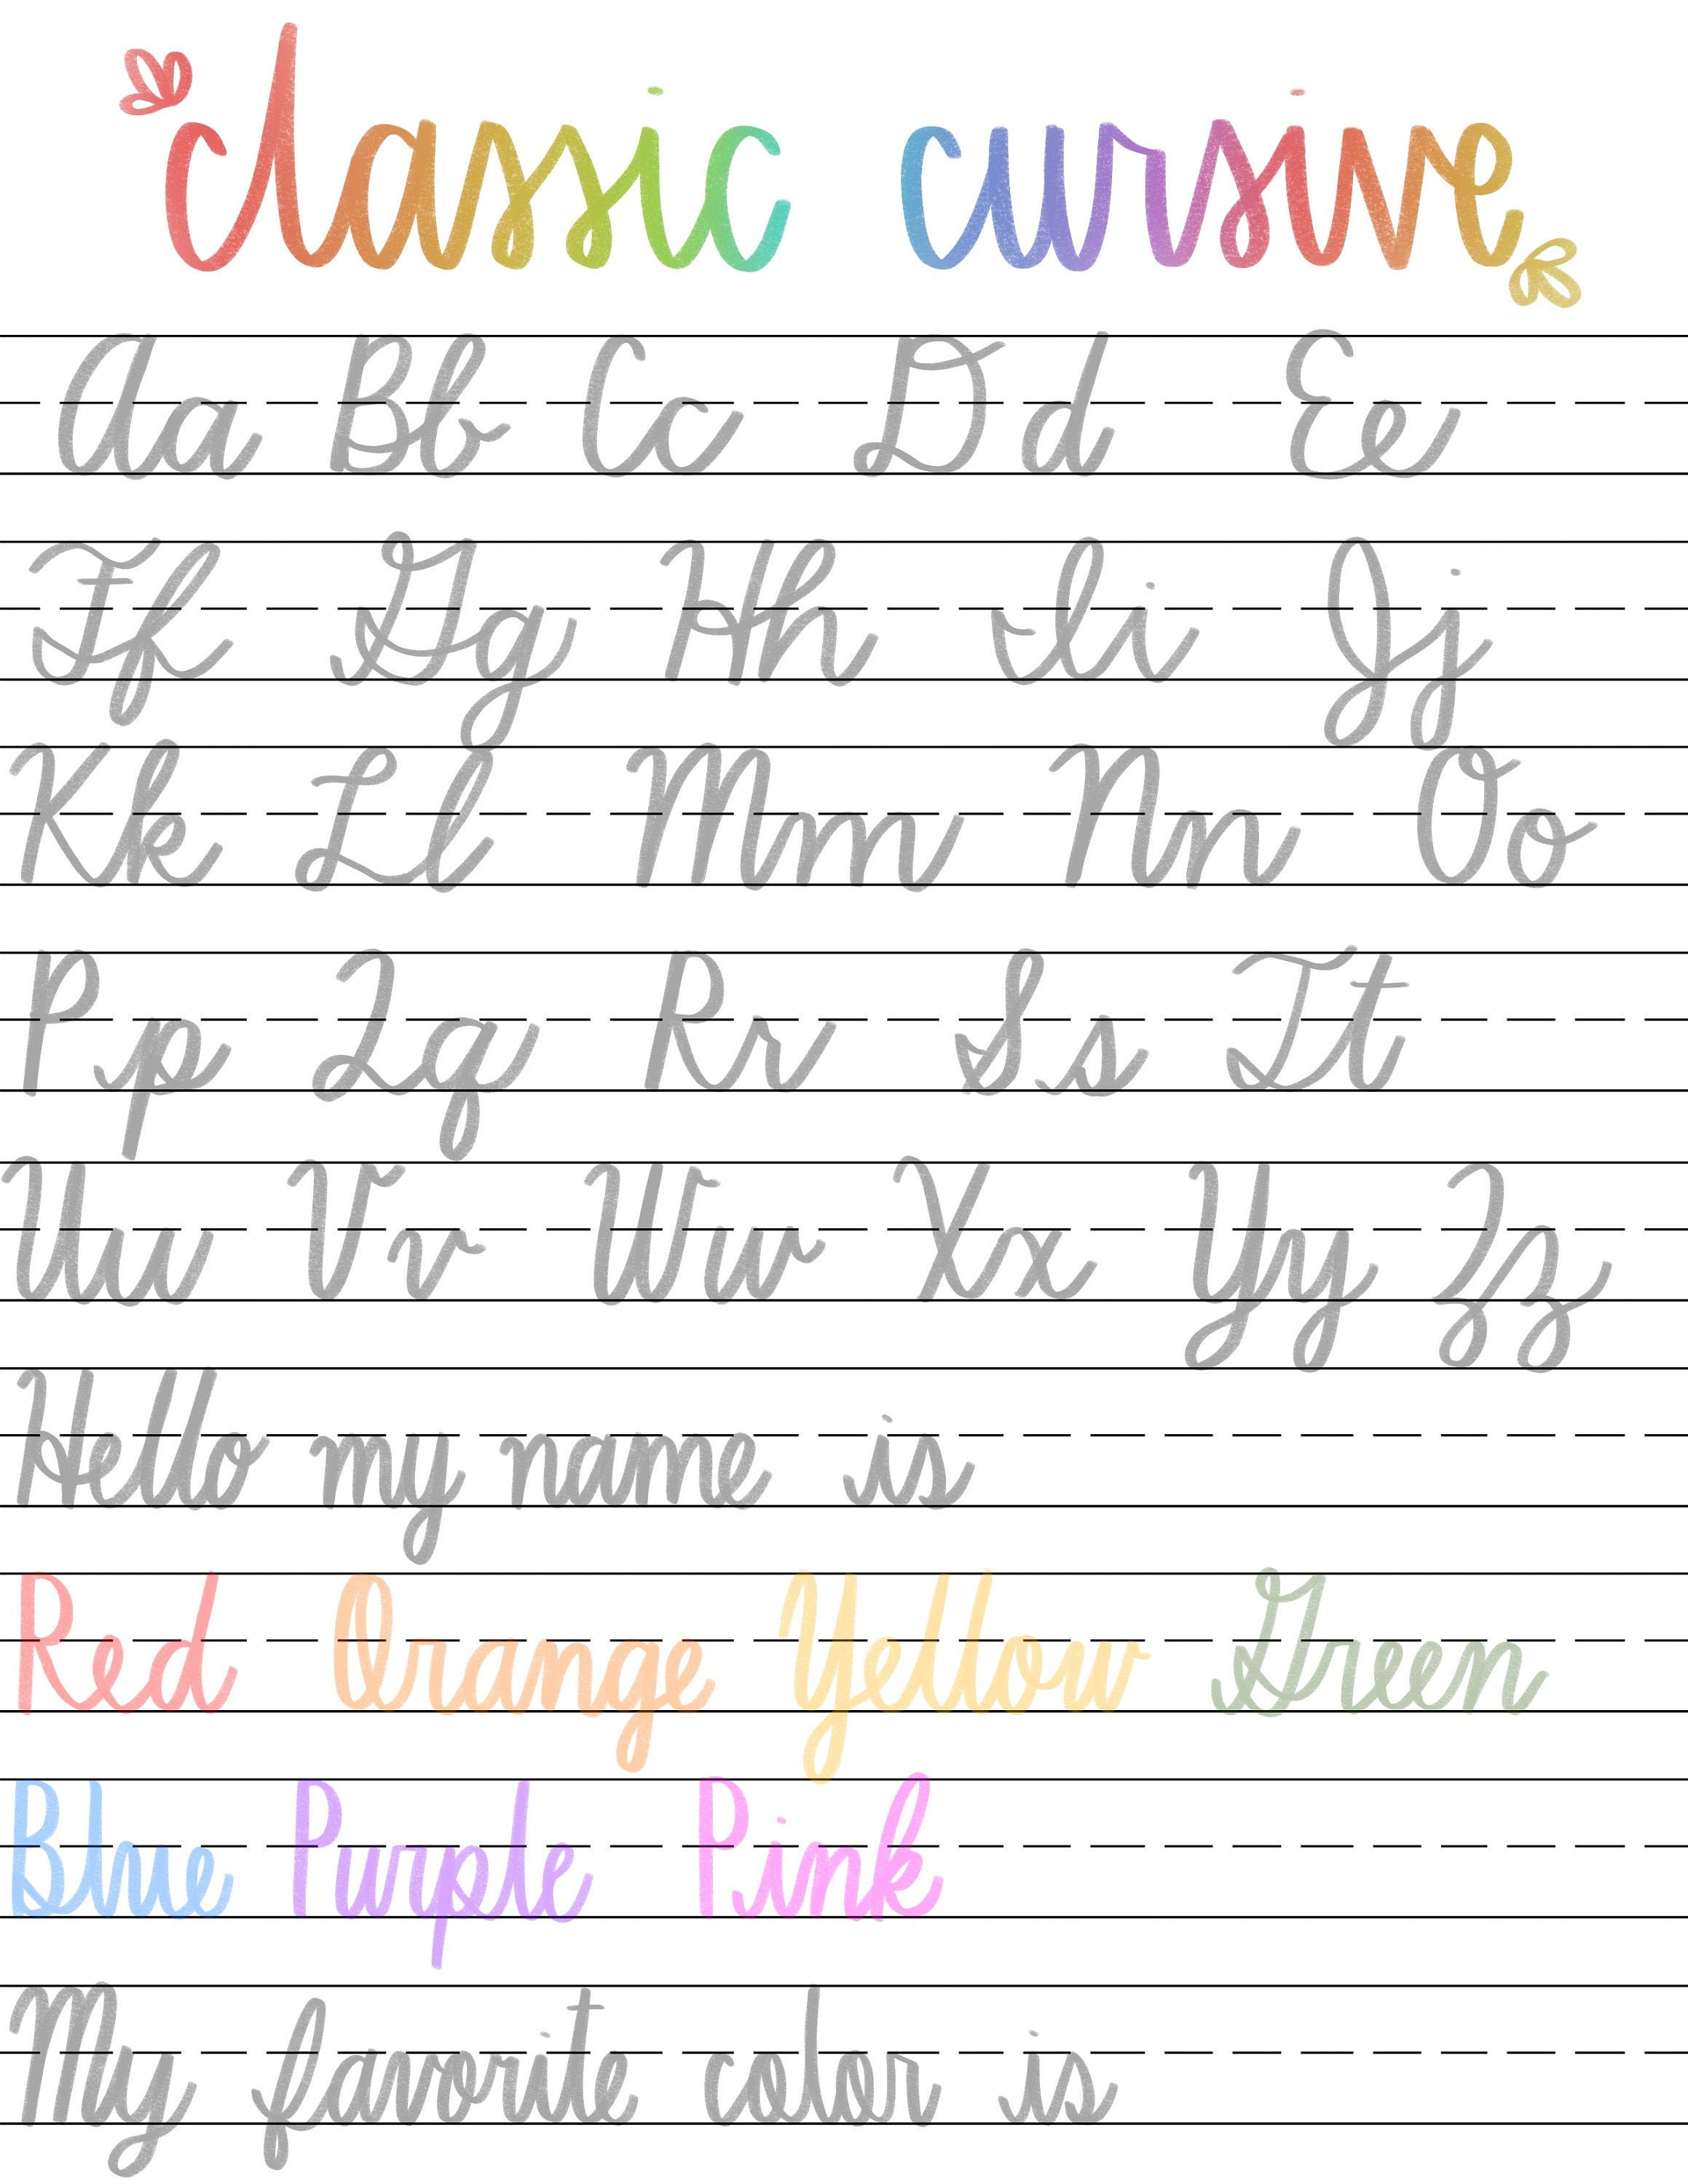 classic cursive
Aa Bb Cc Dd Ee
Ff Gg Hh Ii Jj
Kk Ll Mm Nn Oo
Pp Qq Rr Ss Tt
Uu Vv Ww Xx Yy Zz
Hello my name is
Red Orange Yellow Green
Blue Purple Pink
My favorite color is